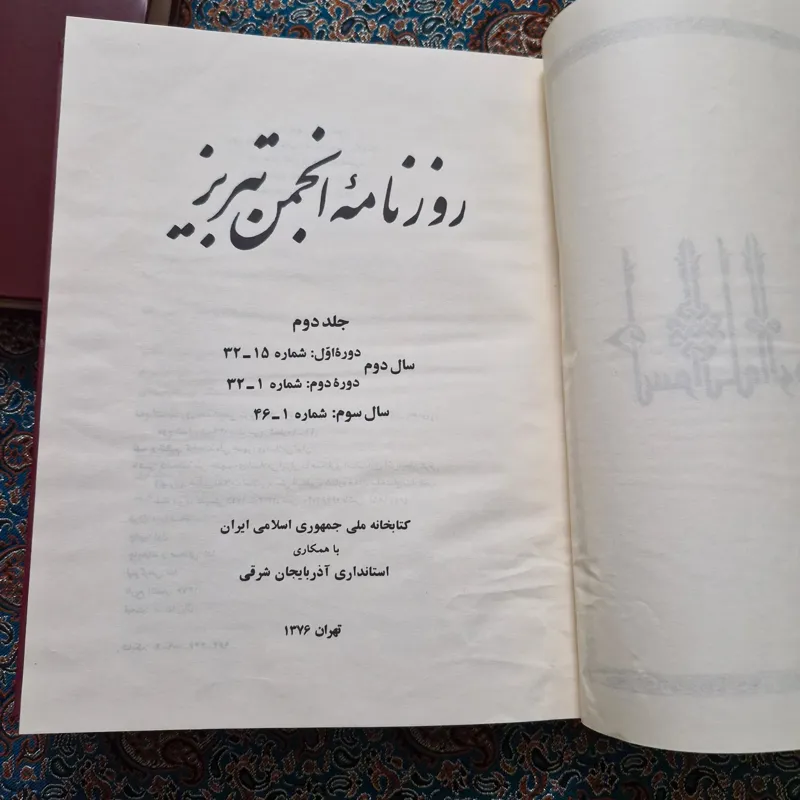 روزنامهٔ انجمن تبریز
جلد دوم
سال دوم
دورهٔ اوّل: شماره ۱۵ـ۳۲
دورهٔ دوم: شماره ۱ـ۳۲
سال سوم: شماره ۱ـ۴۶
کتابخانه ملی جمهوری اسلامی ایران
با همکاری
استانداری آذربایجان شرقی
تهران ۱۳۷۶